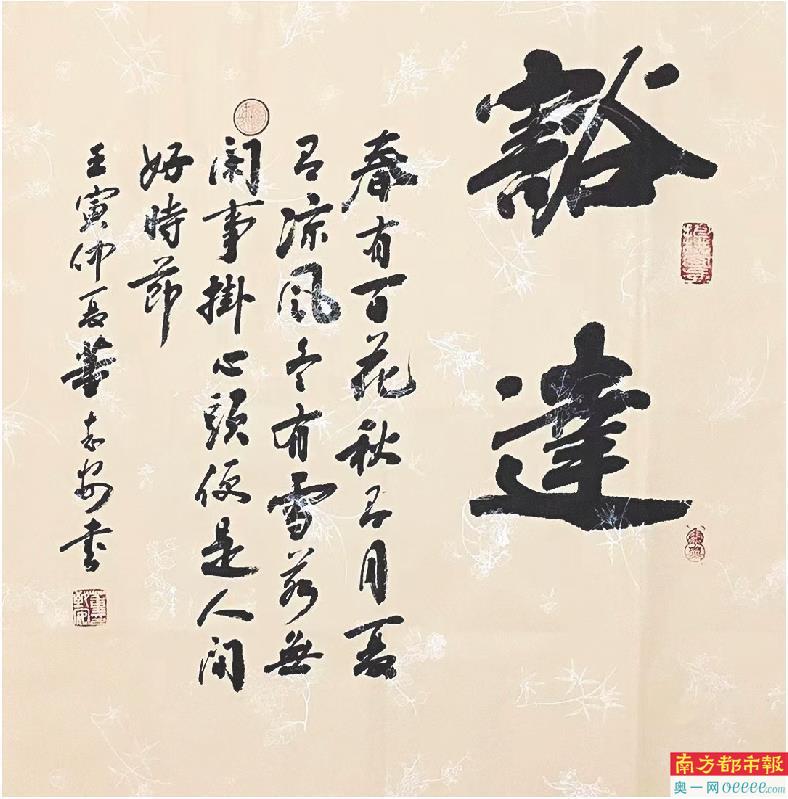 豁達
春有百花秋有月夏
有凉風冬有雪若無
閑事掛心頭便是人間
好時節
壬寅仲夏董志安書
南方都市報
奥一网oeeee.com